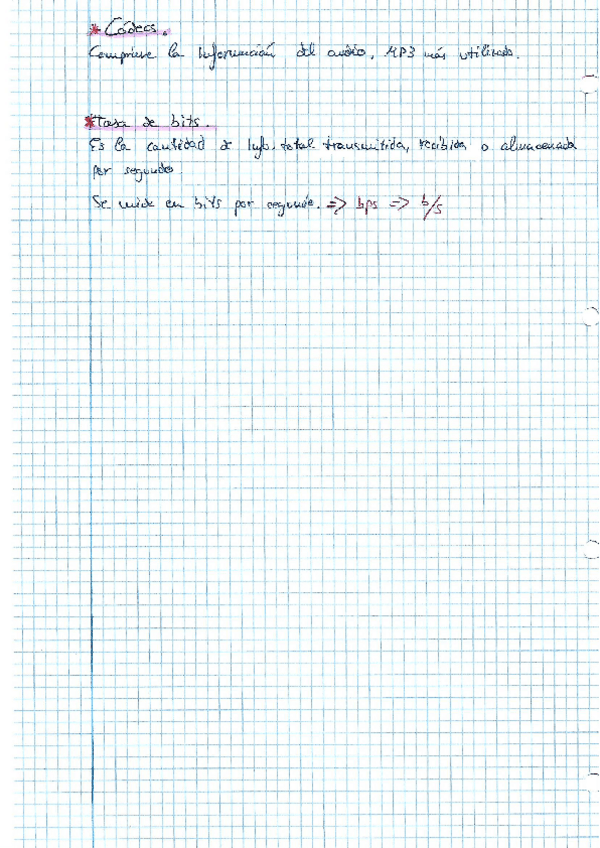 * Códecs.
Comprime la información del audio, MP3 más utilizado.
* Tasa de bits.
Es la cantidad de info. total transmitida, recibida o almacenada
por segundo.
Se mide en bits por segundo. => bps => b/s